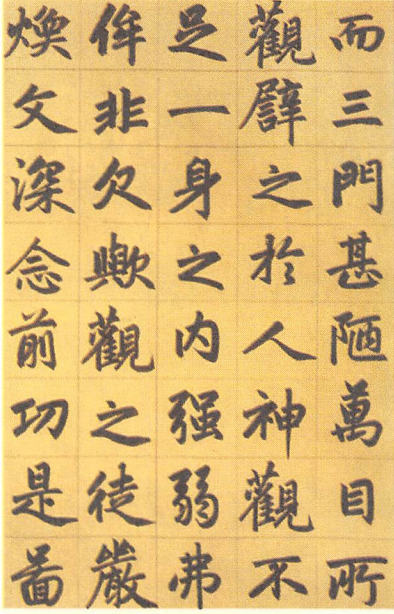 而三門甚陋萬目所
觀譬之於人神觀不
足一身之内强弱弗
侔非欠歟觀之徒嚴
煥文深念前功是啚